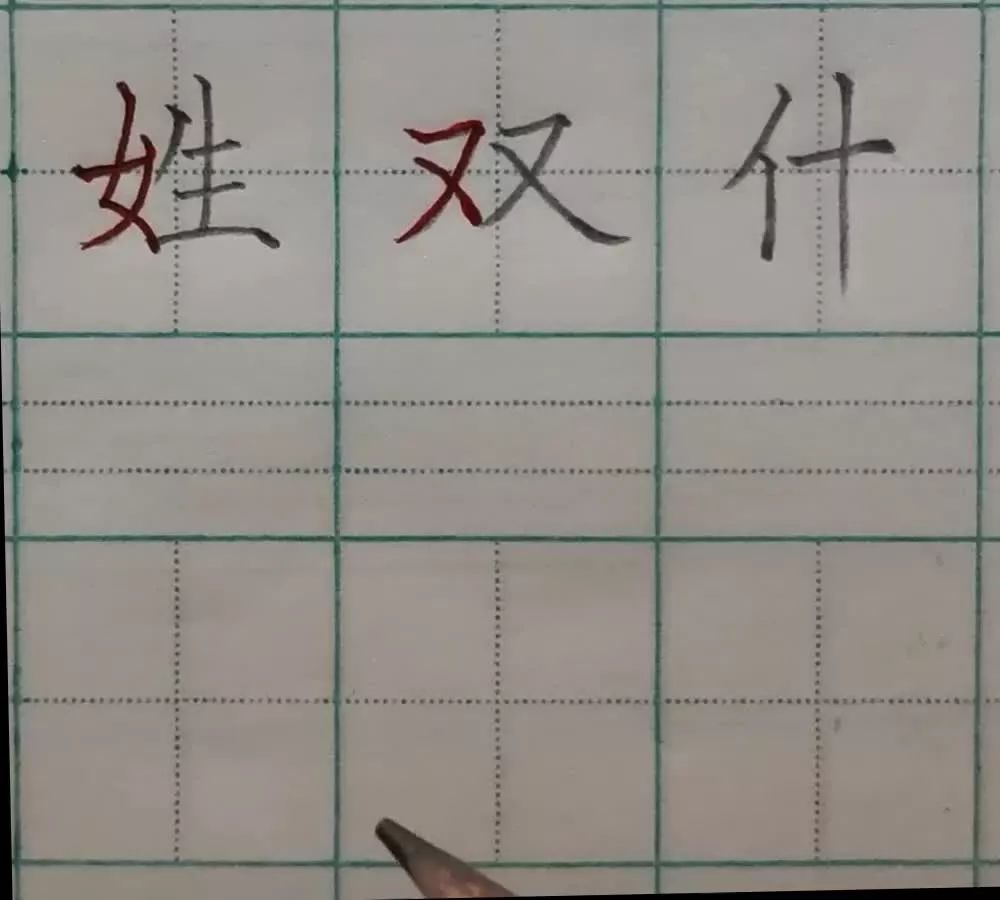 姓双什